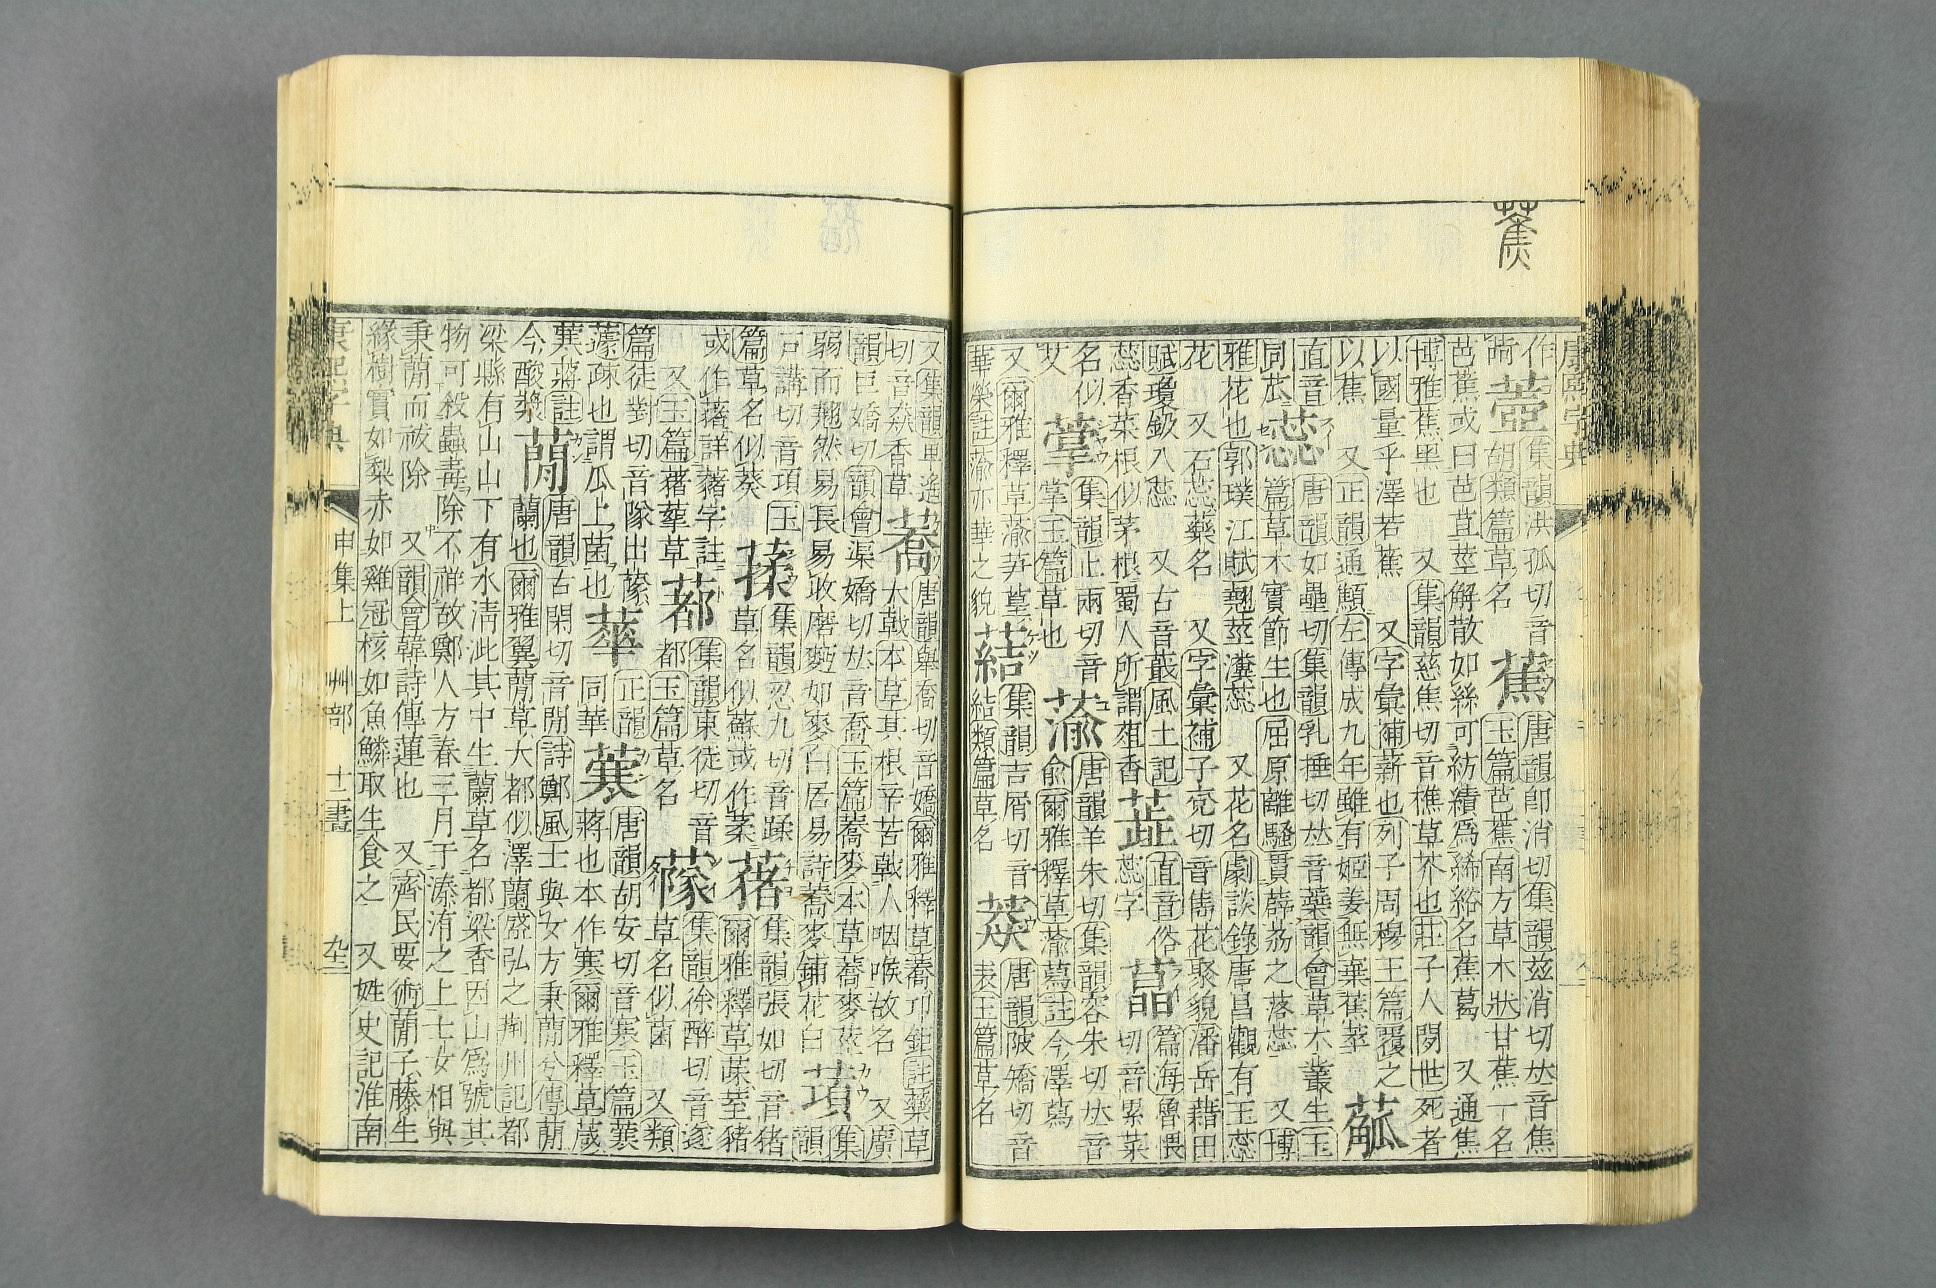 蕉
康熙字典
作
葫
壺
集韻洪孤切音
胡類篇草名
蕉
唐韻卽消切集韻兹消切𠀤音焦
玉篇芭蕉南方草木狀甘蕉一名
芭蕉或曰芭苴莖解散如絲可紡績爲絺綌名蕉葛 又通焦
博雅蕉黑也 又集韻慈焦切音樵草芥也莊子人閒世死者
以國量乎澤若蕉 又字彙補薪也列子周穆王篇覆之
以蕉 又正韻通顦左傳成九年雖有姬姜無棄蕉萃
蓏
直音
同苽
蕊
唐韻如壘切集韻乳捶切𠀤音蘂韻會草木叢生玉
篇草木實節生也屈原離騷貫薜荔之落蕊 又博
雅花也郭璞江賦翹莖瀵蕊 又花名劇談錄唐昌觀有玉蕊
花 又石蕊藥名 又字彙補子兖切音儁花聚貌潘岳藉田
賦瓊鈒入蕊 又古音叢風土記
蕊香菜根似茅根蜀人所謂葅香
直音俗
蕊字
篇海魯偎
切音累菜
名似
艾
集韻止兩切音
掌玉篇草也
蕍
唐韻羊朱切集韻容朱切𠀤音
兪爾雅釋草蕍蕮註今澤蕮
又爾雅釋草蕍芛葟
華榮註蕍亦華之貌
集韻吉屑切音
結類篇草名
唐韻陂矯切音
表玉篇草名
又集韻
切音
香草
蕎
唐韻舉喬切音嬌爾雅釋草蕎卭鉅註藥草
大戟本草其根辛苦戟人咽喉故名 又廣
韻巨嬌切韻會渠嬌切𠀤音喬玉篇蕎麥本草蕎麥莖
弱而翹然易長易收磨麪如麥白居易詩蕎麥鋪花白
集韻
戸講切音項玉
篇草名似葵
集韻忍九切音蹂
草名似蘇或作葇
蕏
集韻張如切音猪
爾雅釋草蒤荎豬
或作藸詳藸字註
又玉篇藸蒘草
集韻東徒切音
都玉篇草名
集韻徐醉切音遂
草名似菌 又類
篇徒對切音隊出
蘧疏也謂瓜上菌也
蕐
正韻
同華
唐韻胡安切音寒玉篇
蔣也本作寒爾雅釋草葴
蔣註
今酸漿
蕑
唐韻古閑切音閒詩鄭風士與女方秉蕑兮傳蕑
蘭也爾雅翼蕑草大都似澤蘭盛弘之荆州記都
梁縣有山山下有水淸泚其中生蘭草名都梁香因山爲號其
物可殺蟲毒除不祥故鄭人方春三月于溱洧之上士女相與
秉蕑而祓除 又韻會韓詩傳蓮也 又齊民要術蕑子藤生
緣樹實如梨赤如雞冠核如魚鱗取生食之 又姓史記淮南
康熙字典
申集上 艸部 十二畫